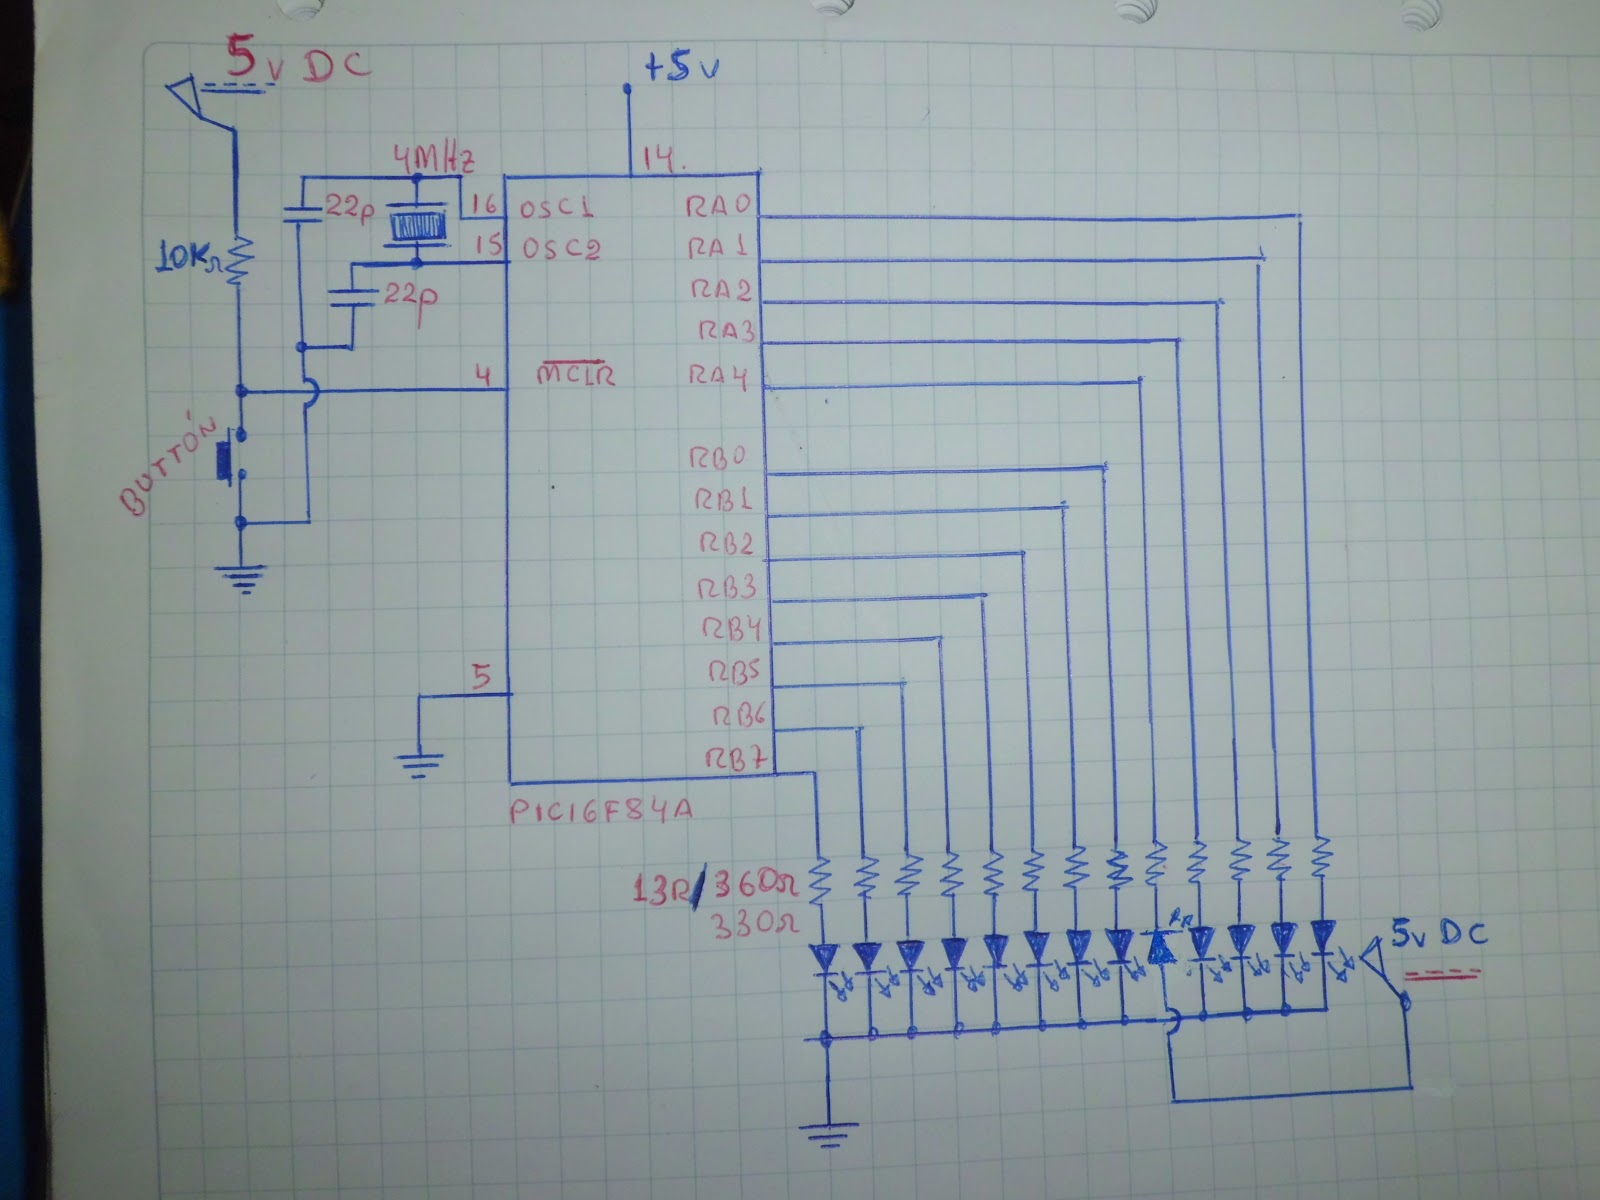 5v DC
+5v
4MHz
14.
22p
16 OSC1
RA0
15 OSC2
RA1
10KΩ
22p
RA2
RA3
4 MCLR
RA4
BUTTÓN
RB0
RB1
RB2
RB3
RB4
5
RB5
RB6
RB7
PIC16F84A
13R/360Ω
330Ω
5v DC